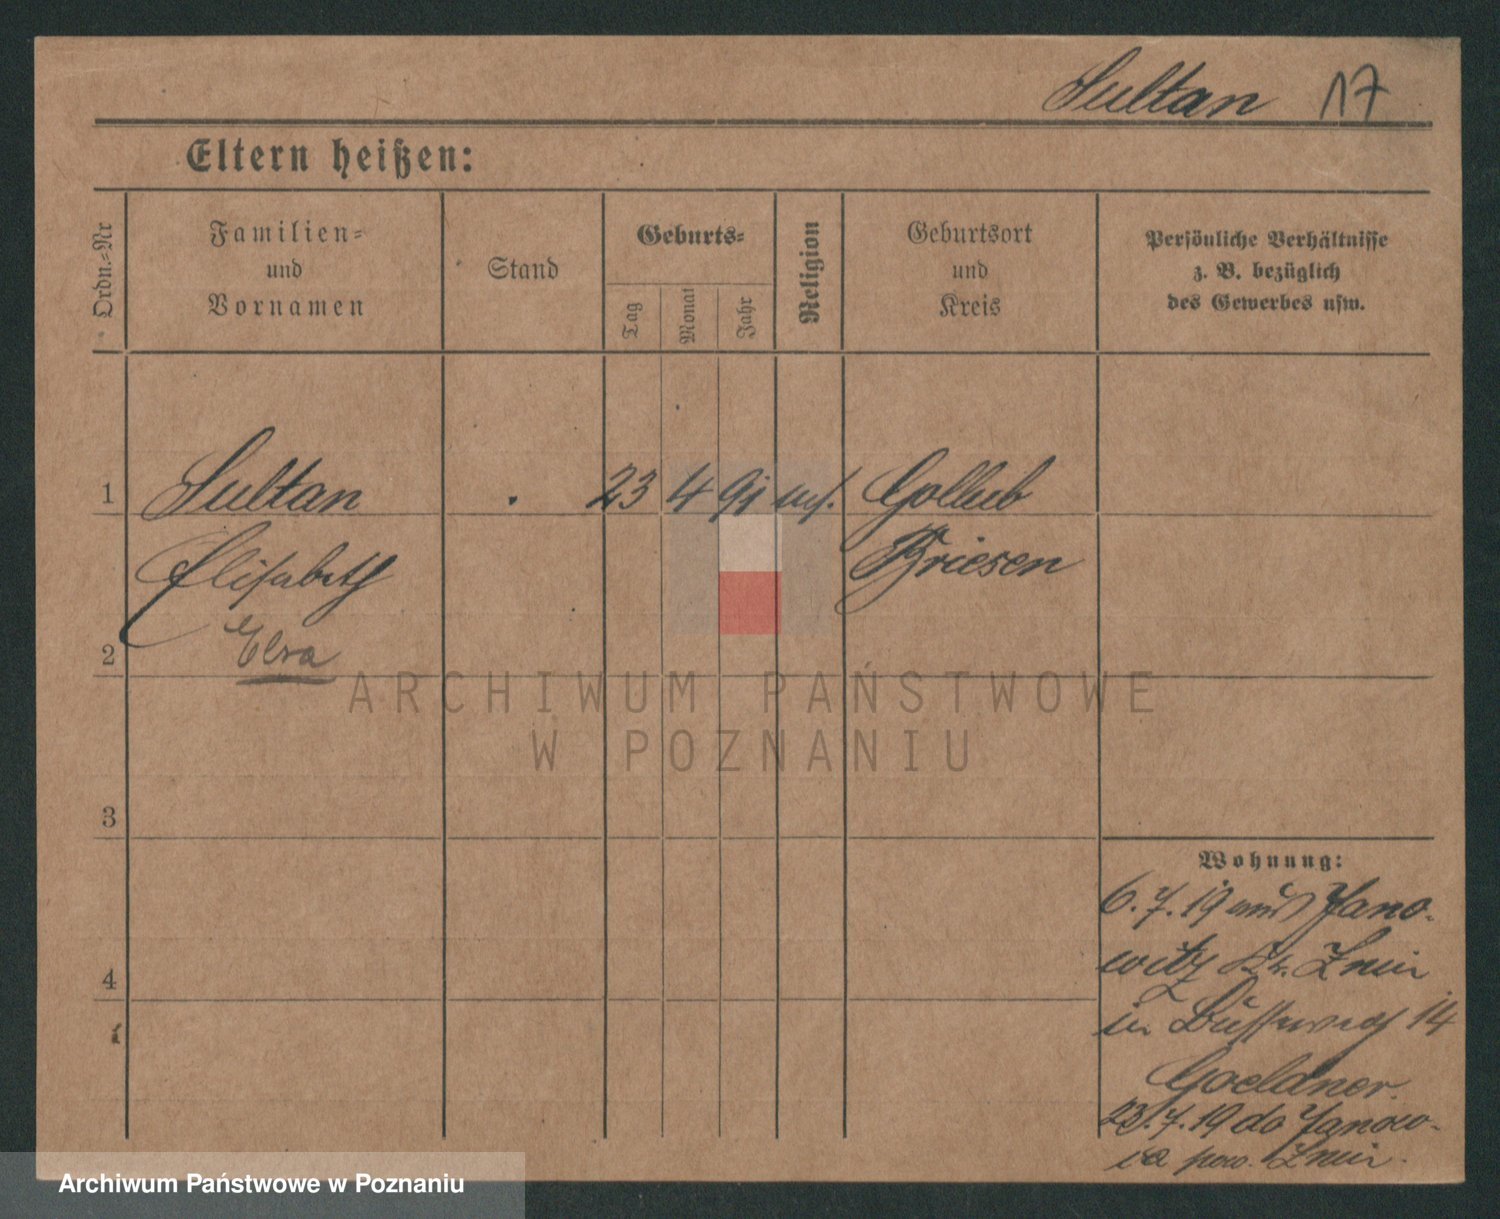 Sultan 17
Eltern heißen:
Ordn.-Nr
Familien-
und
Vornamen
Stand
Geburts-
Tag
Monat
Jahr
Religion
Geburtsort
und
Kreis
Persönliche Verhältnisse
z. B. bezüglich
des Gewerbes usw.
1 Sultan 23 4 91 Gollub
Elisabeth Briesen
2 Elsa
3
4
Wohnung:
6.7.19 aus Jano-
witz Kr. Znin
in 14
Goeldner.
23.7.19 do Janow-
ca pow. Żnin.
ARCHIWUM PAŃSTWOWE
W POZNANIU
Archiwum Państwowe w Poznaniu